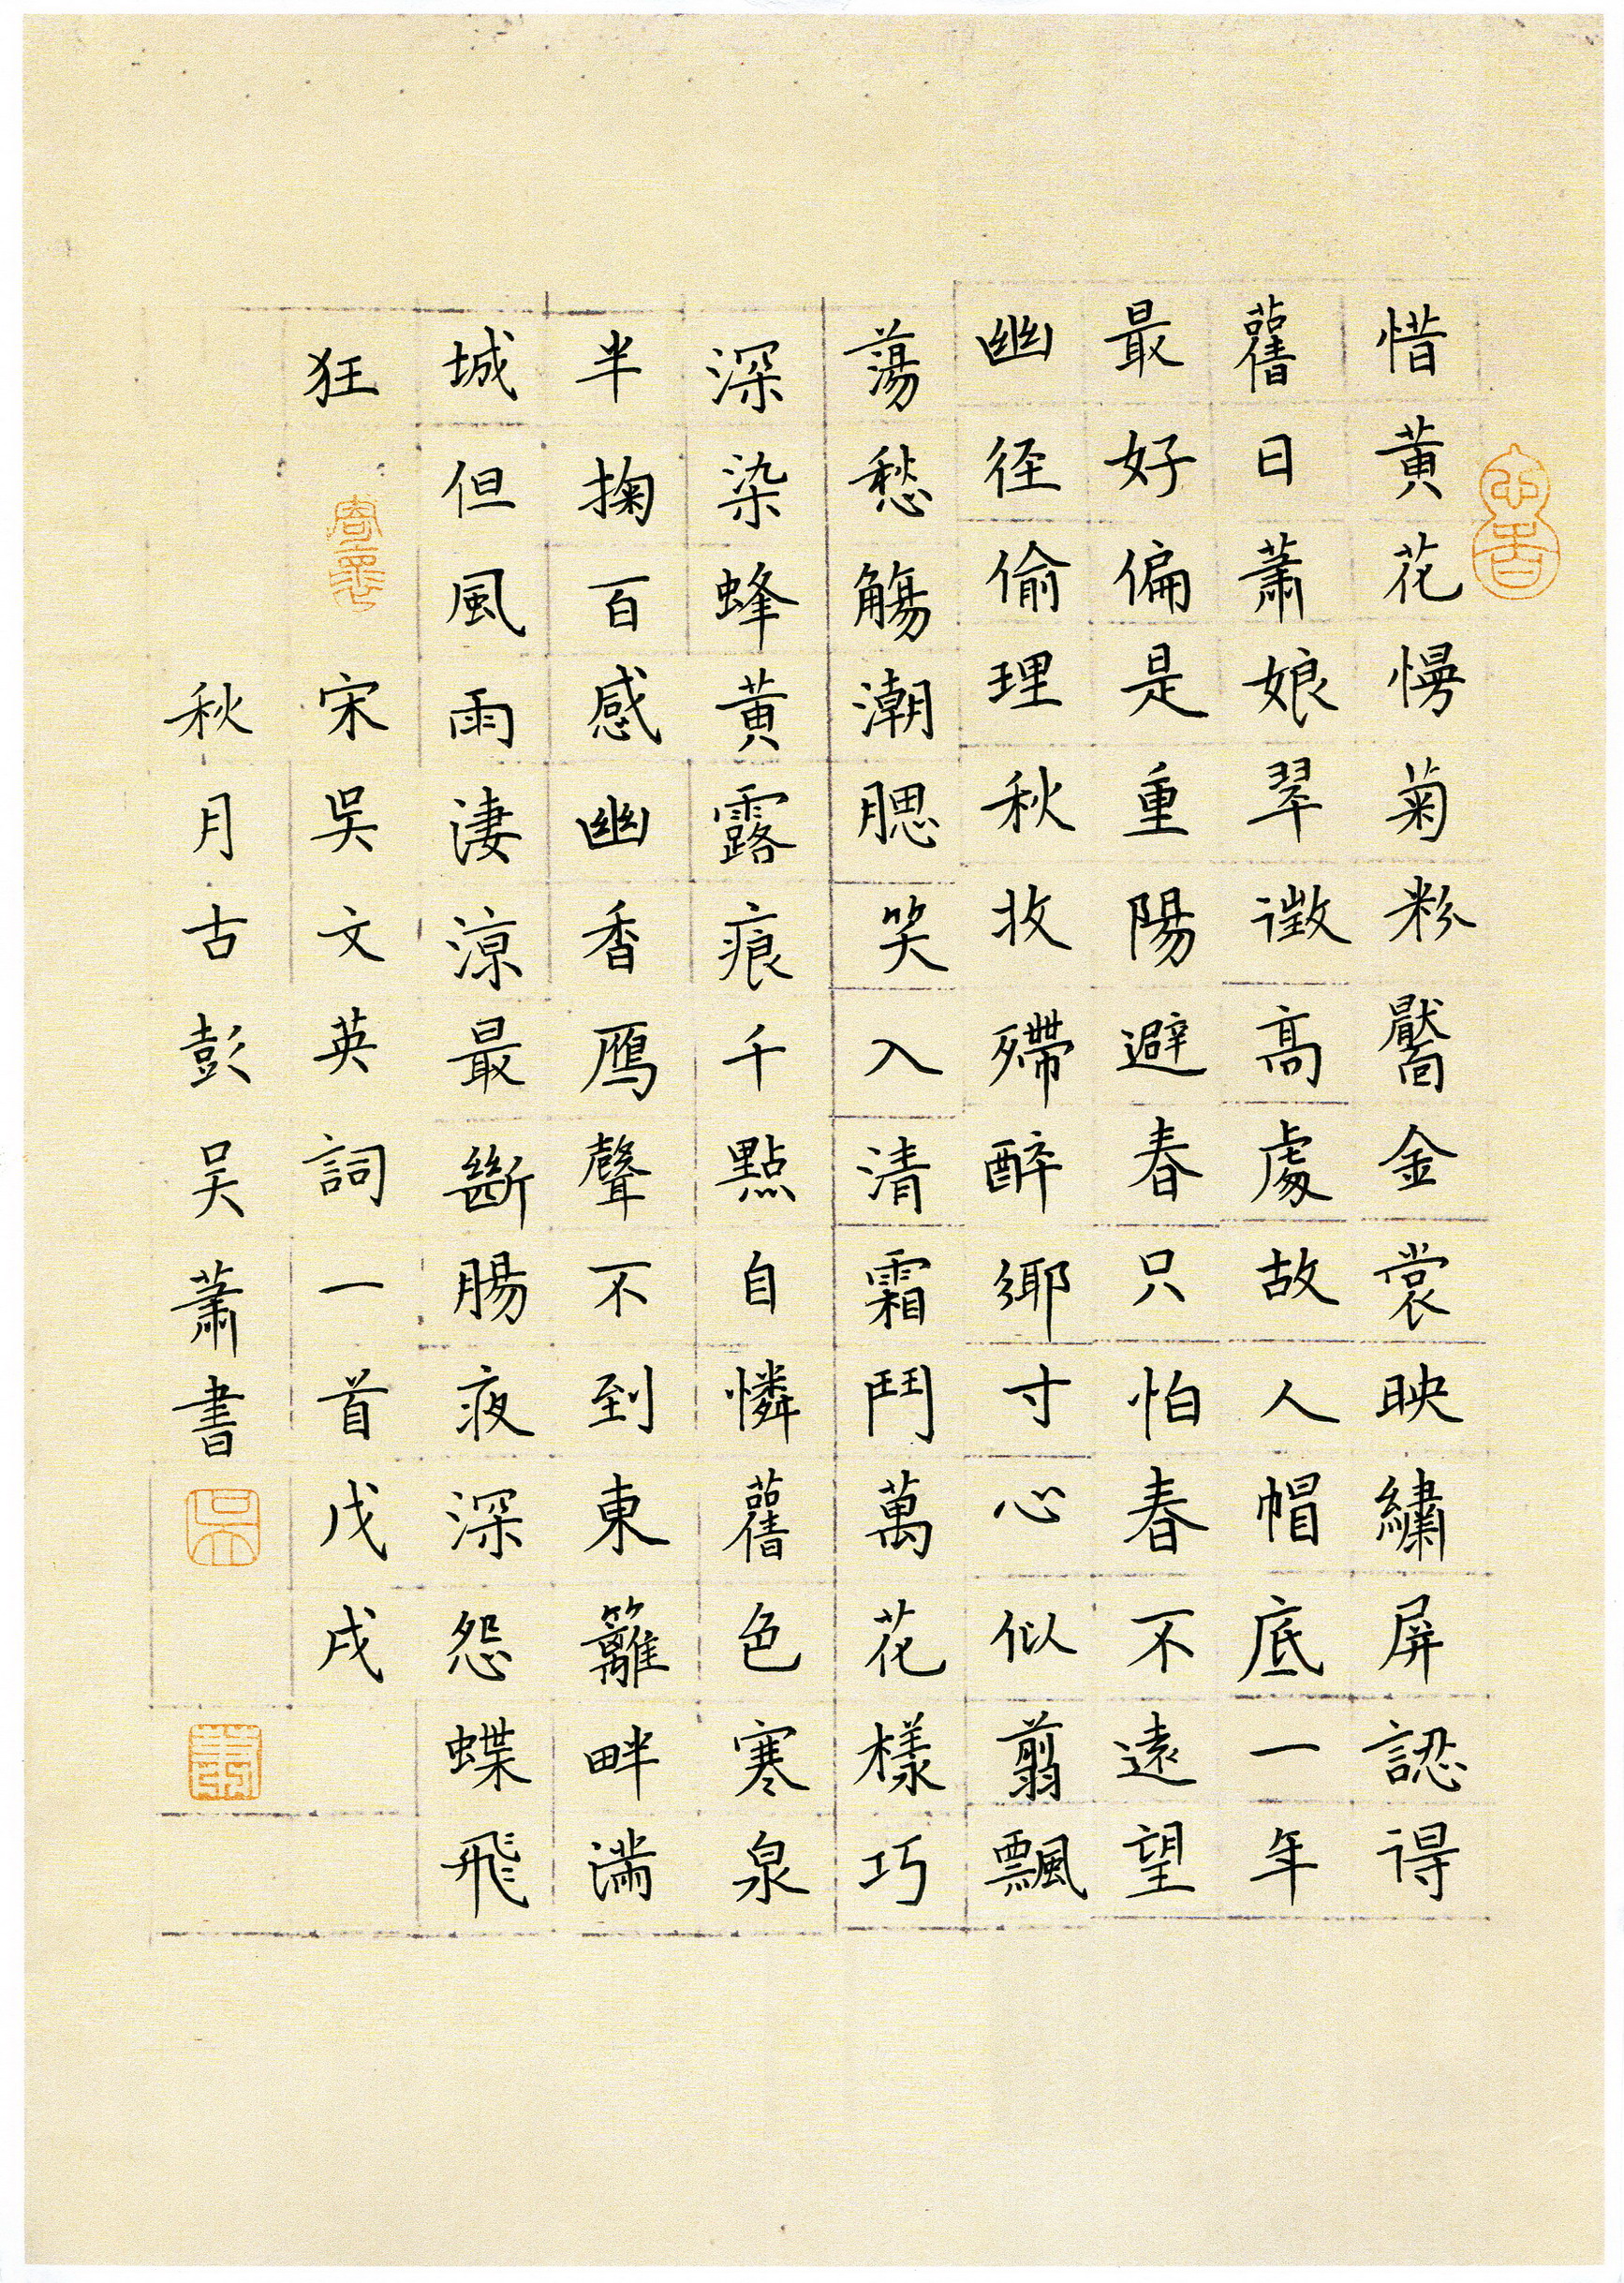 惜黃花慢菊粉靨金裳映繡屏認得
舊日蕭娘翠微高處故人帽底一年
最好偏是重陽避春只怕春不遠望
幽徑偷理秋妝殢醉鄉寸心似翦飄
蕩愁觴潮腮笑入清霜鬥萬花樣巧
深染蜂黃露痕千點自憐舊色寒泉
半掬百感幽香雁聲不到東籬畔滿
城但風雨淒涼最斷腸夜深怨蝶飛
狂 宋吳文英詞一首戊戌
秋月古彭吴蕭書